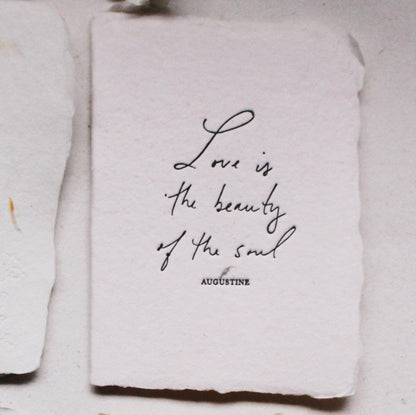 Love is
the beauty
of the soul
AUGUSTINE